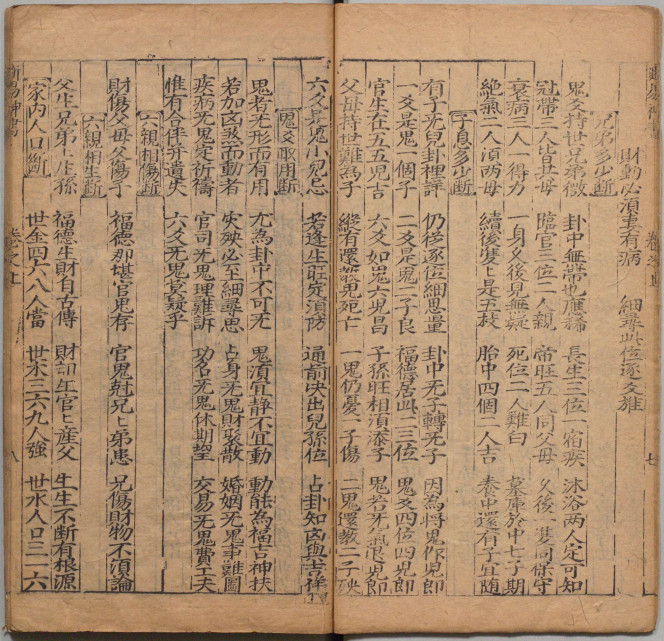 財動必須妻有病　細尋此位逐爻推
兄弟多少斷
鬼爻持世兄弟微　卦中無帶也應稀　長生三位一宿疾　沐浴兩人定可知
冠帶二人皆異母　臨官三位二人親　帝旺五人同父母　父後一隻同保守
衰病二人一得力　一身爻後見無疑　死位二人難臼　墓庫於中七子期
絶氣二人須兩母　續後雙上是五枝　胎中四個二人吉　養中還有子宜随
子息多少斷
有子无兒卦裡詳　仍移逐位細思量　卦中无子轉无子　因為將鬼作兒郎
一爻是鬼一個子　二爻是鬼二子良　福德居此二三位　鬼爻四位四兒郎
官生在五五兒吉　六爻如鬼六兒昌　子孫旺相須添子　鬼若无氣退兒郎
父母持世難為子　縱有還教兒死亡　一鬼仍憂一子傷　二鬼還教二子殃
六爻是鬼小兒忌　若逢生旺定須防　通前次出兒孫位　占卦知凶與吉祥
鬼爻取用斷
鬼者无形而有用　尤為卦中不可无　鬼須宜静不宜動　動能為福吉神扶
若加凶煞而動者　灾殃必至細尋思　占身无鬼財衮散　婚姻无鬼事難圖
疾病无鬼定祈禱　官司无鬼理難訴　功名无鬼休期望　交易无鬼費工夫
惟有合伴并遺失　六爻无鬼莫疑乎
六親相傷斷
財傷父母父傷子　福德那堪官鬼存　官鬼尅兄上弟患　兄傷財物不須論
六親相生斷
父生兄弟上生孫　福德生財自古傳　財卻生官上産父　生生不断有根源
家内人口斷
世金四六八人當　世木三六九人強　世水人口三一六
卷之上
七
卷之上
八